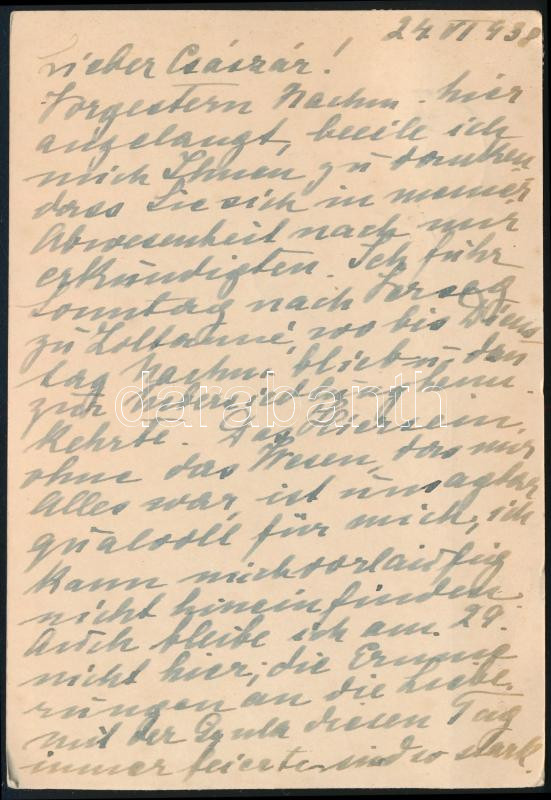 24 VI 938
Lieber Császár!
Vorgestern Nachm. hier
angelangt, beeile ich
mich Ihnen zu danken
dass Sie sich in meiner
Abwesenheit nach mir
erkundigten. Ich fuhr
Sonntag nach Verseg
zu Zoltánné, wo bis Diens
tag Nachm. blieb u. dan
zur
kehrte. Das Hiersein,
ohne das Wesen, das mir
Alles war, ist unsagbar
qualvoll für mich, ich
kann mich vorläufig
nicht hineinfinden.
Auch bleibe ich am 29.
nicht hier, die Erinne
rungen an die Liebe,
mit der Gyula diesen Tag
immer feierte sind zu stark.
darabanth